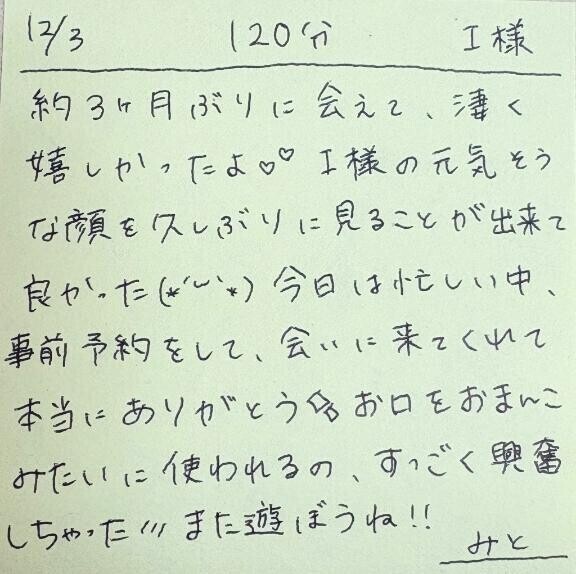 12/3 120分 I様
約3ヶ月ぶりに会えて、凄く
嬉しかったよ♡♡ I様の元気そう
な顔を久しぶりに見ることが出来て
良かった(*´︶`*) 今日は忙しい中、
事前予約をして、会いに来てくれて
本当にありがとう✨ お口をおまんこ
みたいに使われるの、すっごく興奮
しちゃった/// また遊ぼうね!!
みと